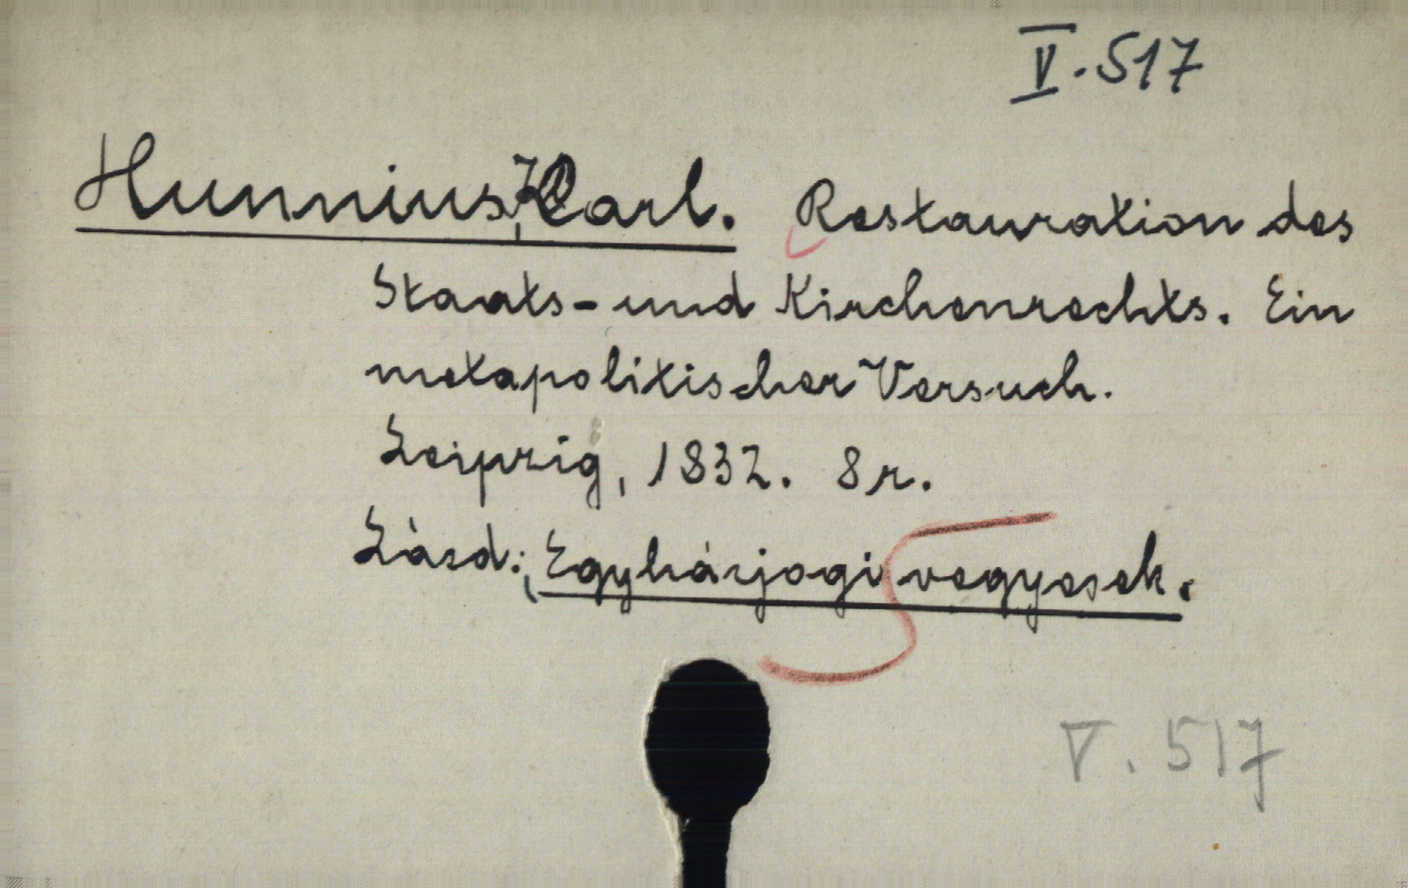 V. 517
Hunnius, Karl. Restauration des
Staats- und Kirchenrechts. Ein
metapolitischer Versuch.
Leipzig, 1832. 8 r.
Lásd: Egyházjogi vegyesek.
V. 517